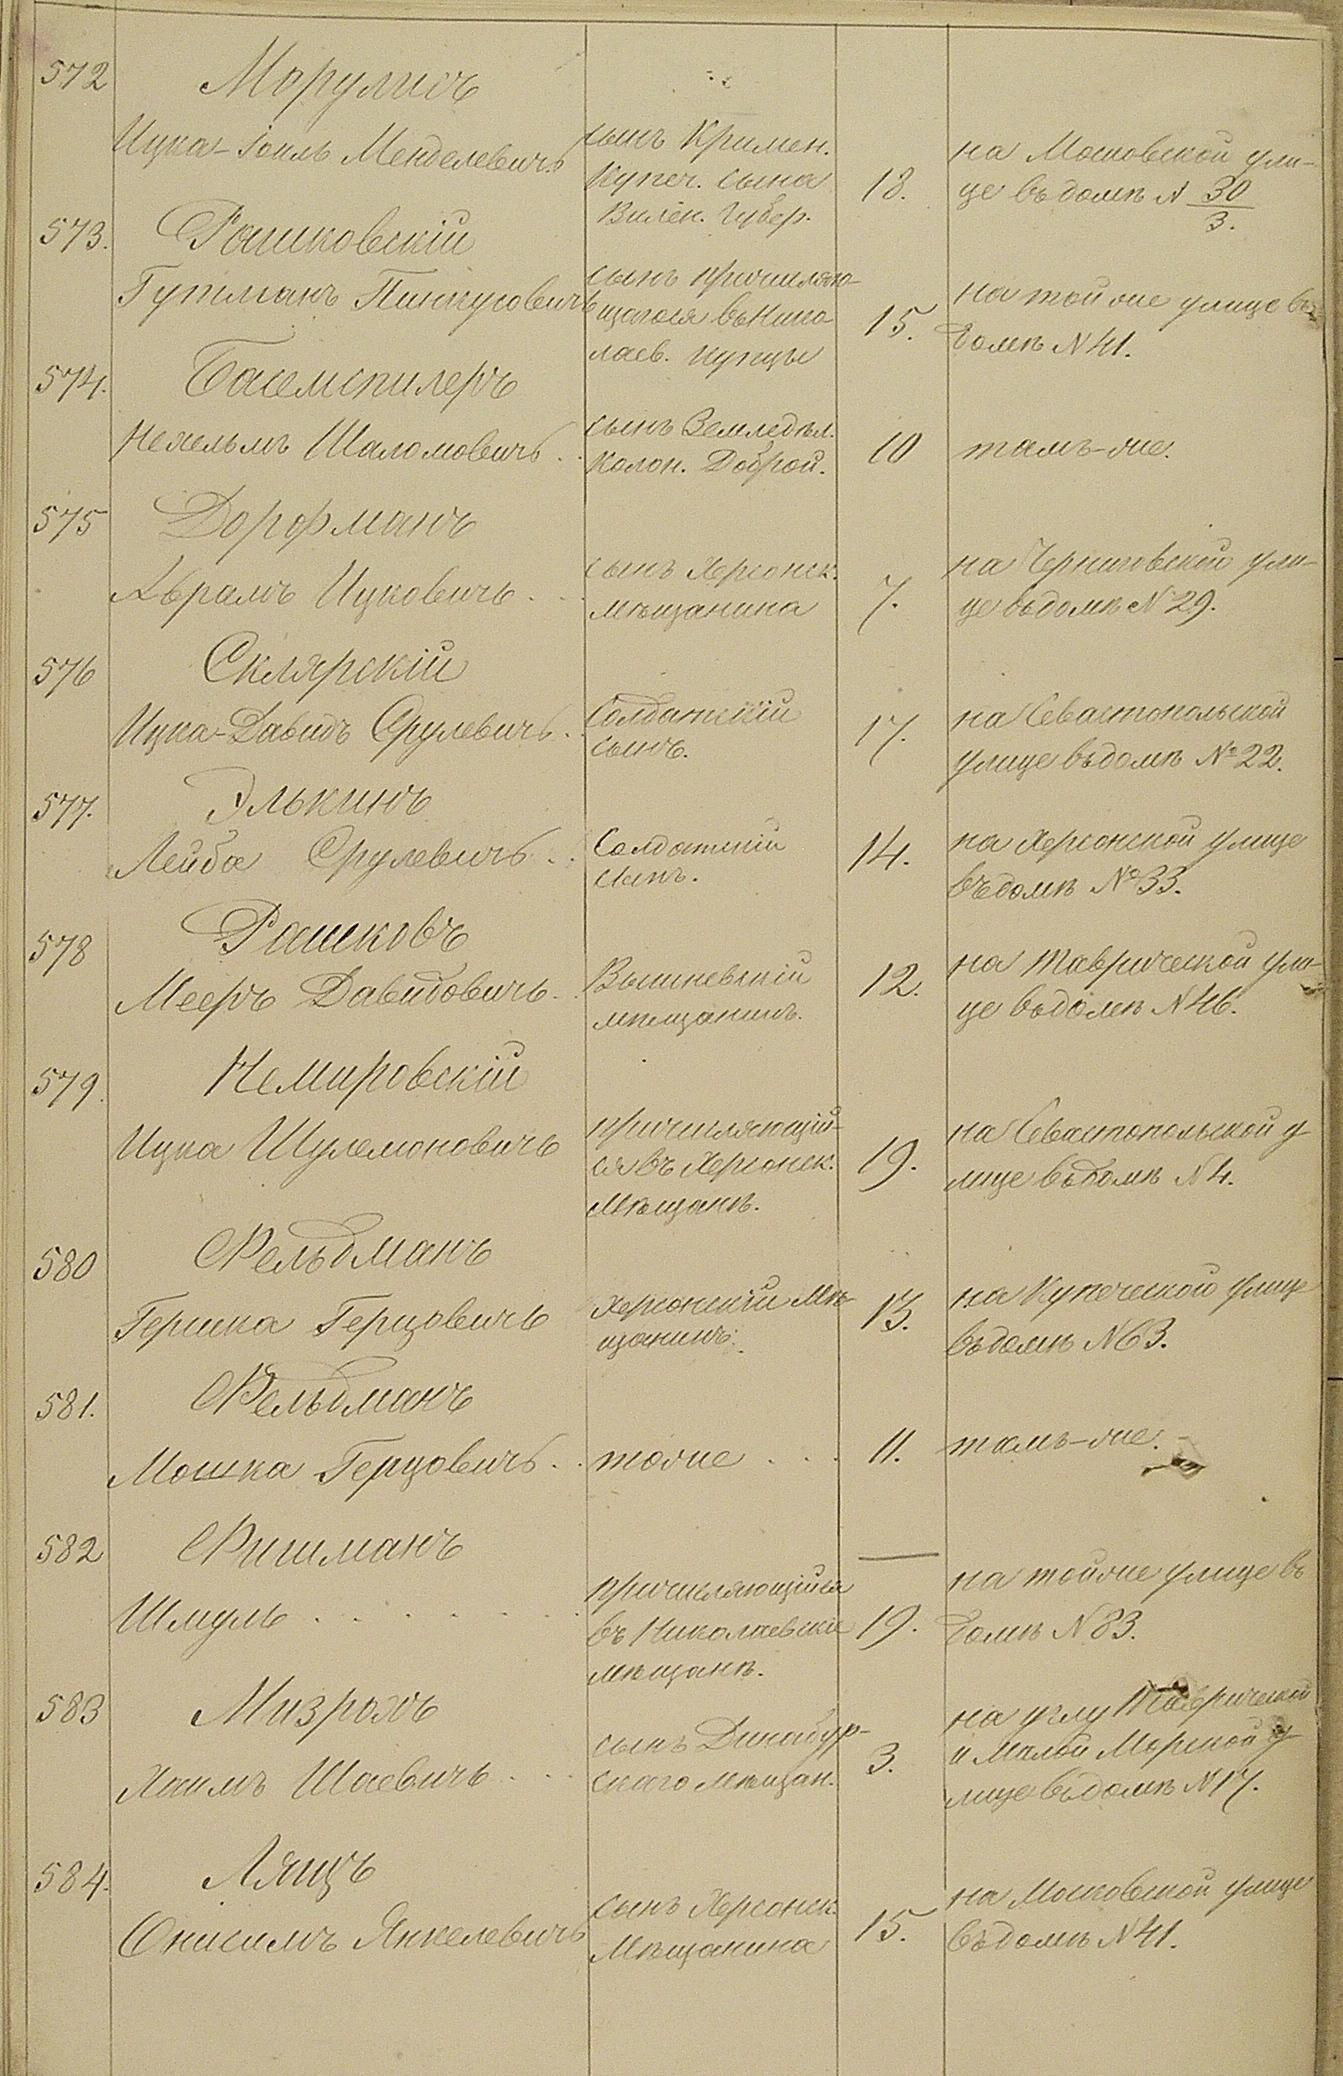 572 Моргулисъ
Ицка-Іоиль Менделевичъ сынъ Кримен. купеч. сына Вилен. Губер. 18. на Московской ули-
це въ домѣ № 30/3.
573. Рашковскій
Гутманъ Пинкусовичъ сынъ причисляю-
щагося въ Нико-
лаев. купцы 15. на той же улице въ
домѣ №41.
574. 
Шаломовичъ . . сынъ Земледѣл.
Колон. Доброй. 10 тамъ-же.
575 Дорфманъ
Абрамъ Ицковичъ . . . сынъ Херсонск.
мѣщанина 7. на Черниговской ули-
це въ домѣ №29.
576 Склярскій
Ицка-Давидъ Срулевичъ . . Солдатскій
сынъ. 17. на Севастопольской
улице въ домѣ №22.
577. Элькинъ
Лейба Срулевичъ . . Солдатскій
сынъ. 14. на Херсонской улице
въ домѣ №33.
578 Рашковъ
Мееръ Давидовичъ . . Вишневскій
мѣщанинъ. 12. на Таврической ули-
це въ домѣ №46.
579. Немировскій
Ицка Шулемоновичъ причисляющій-
ся въ Херсонск.
Мѣщане. 19. на Севастопольской у-
лице въ домѣ №4.
580 Фельдманъ
Гершка Герцовичъ Херсонскій Мѣ-
щанинъ. 13. на Купеческой улице
въ домѣ №63.
581. Фельдманъ
Мошка Герцовичъ . . тоже . . . 11. тамъ-же.
582 Фишманъ
Шмуль . . . . . . . причисляющійся
въ Николаевскіе
мѣщане. 19. на той же улице въ
домѣ №83.
583 Мизрахъ
Хаимъ Шаевичъ . . . сынъ Динабур-
скаго Мѣщан. 3. на углу Таврической
и Малой Морской у-
лице въ домѣ №17.
584. Лящъ
Онисимъ Янкелевичъ сынъ Херсонск.
Мѣщанина 15. на Московской улице
въ домѣ №41.